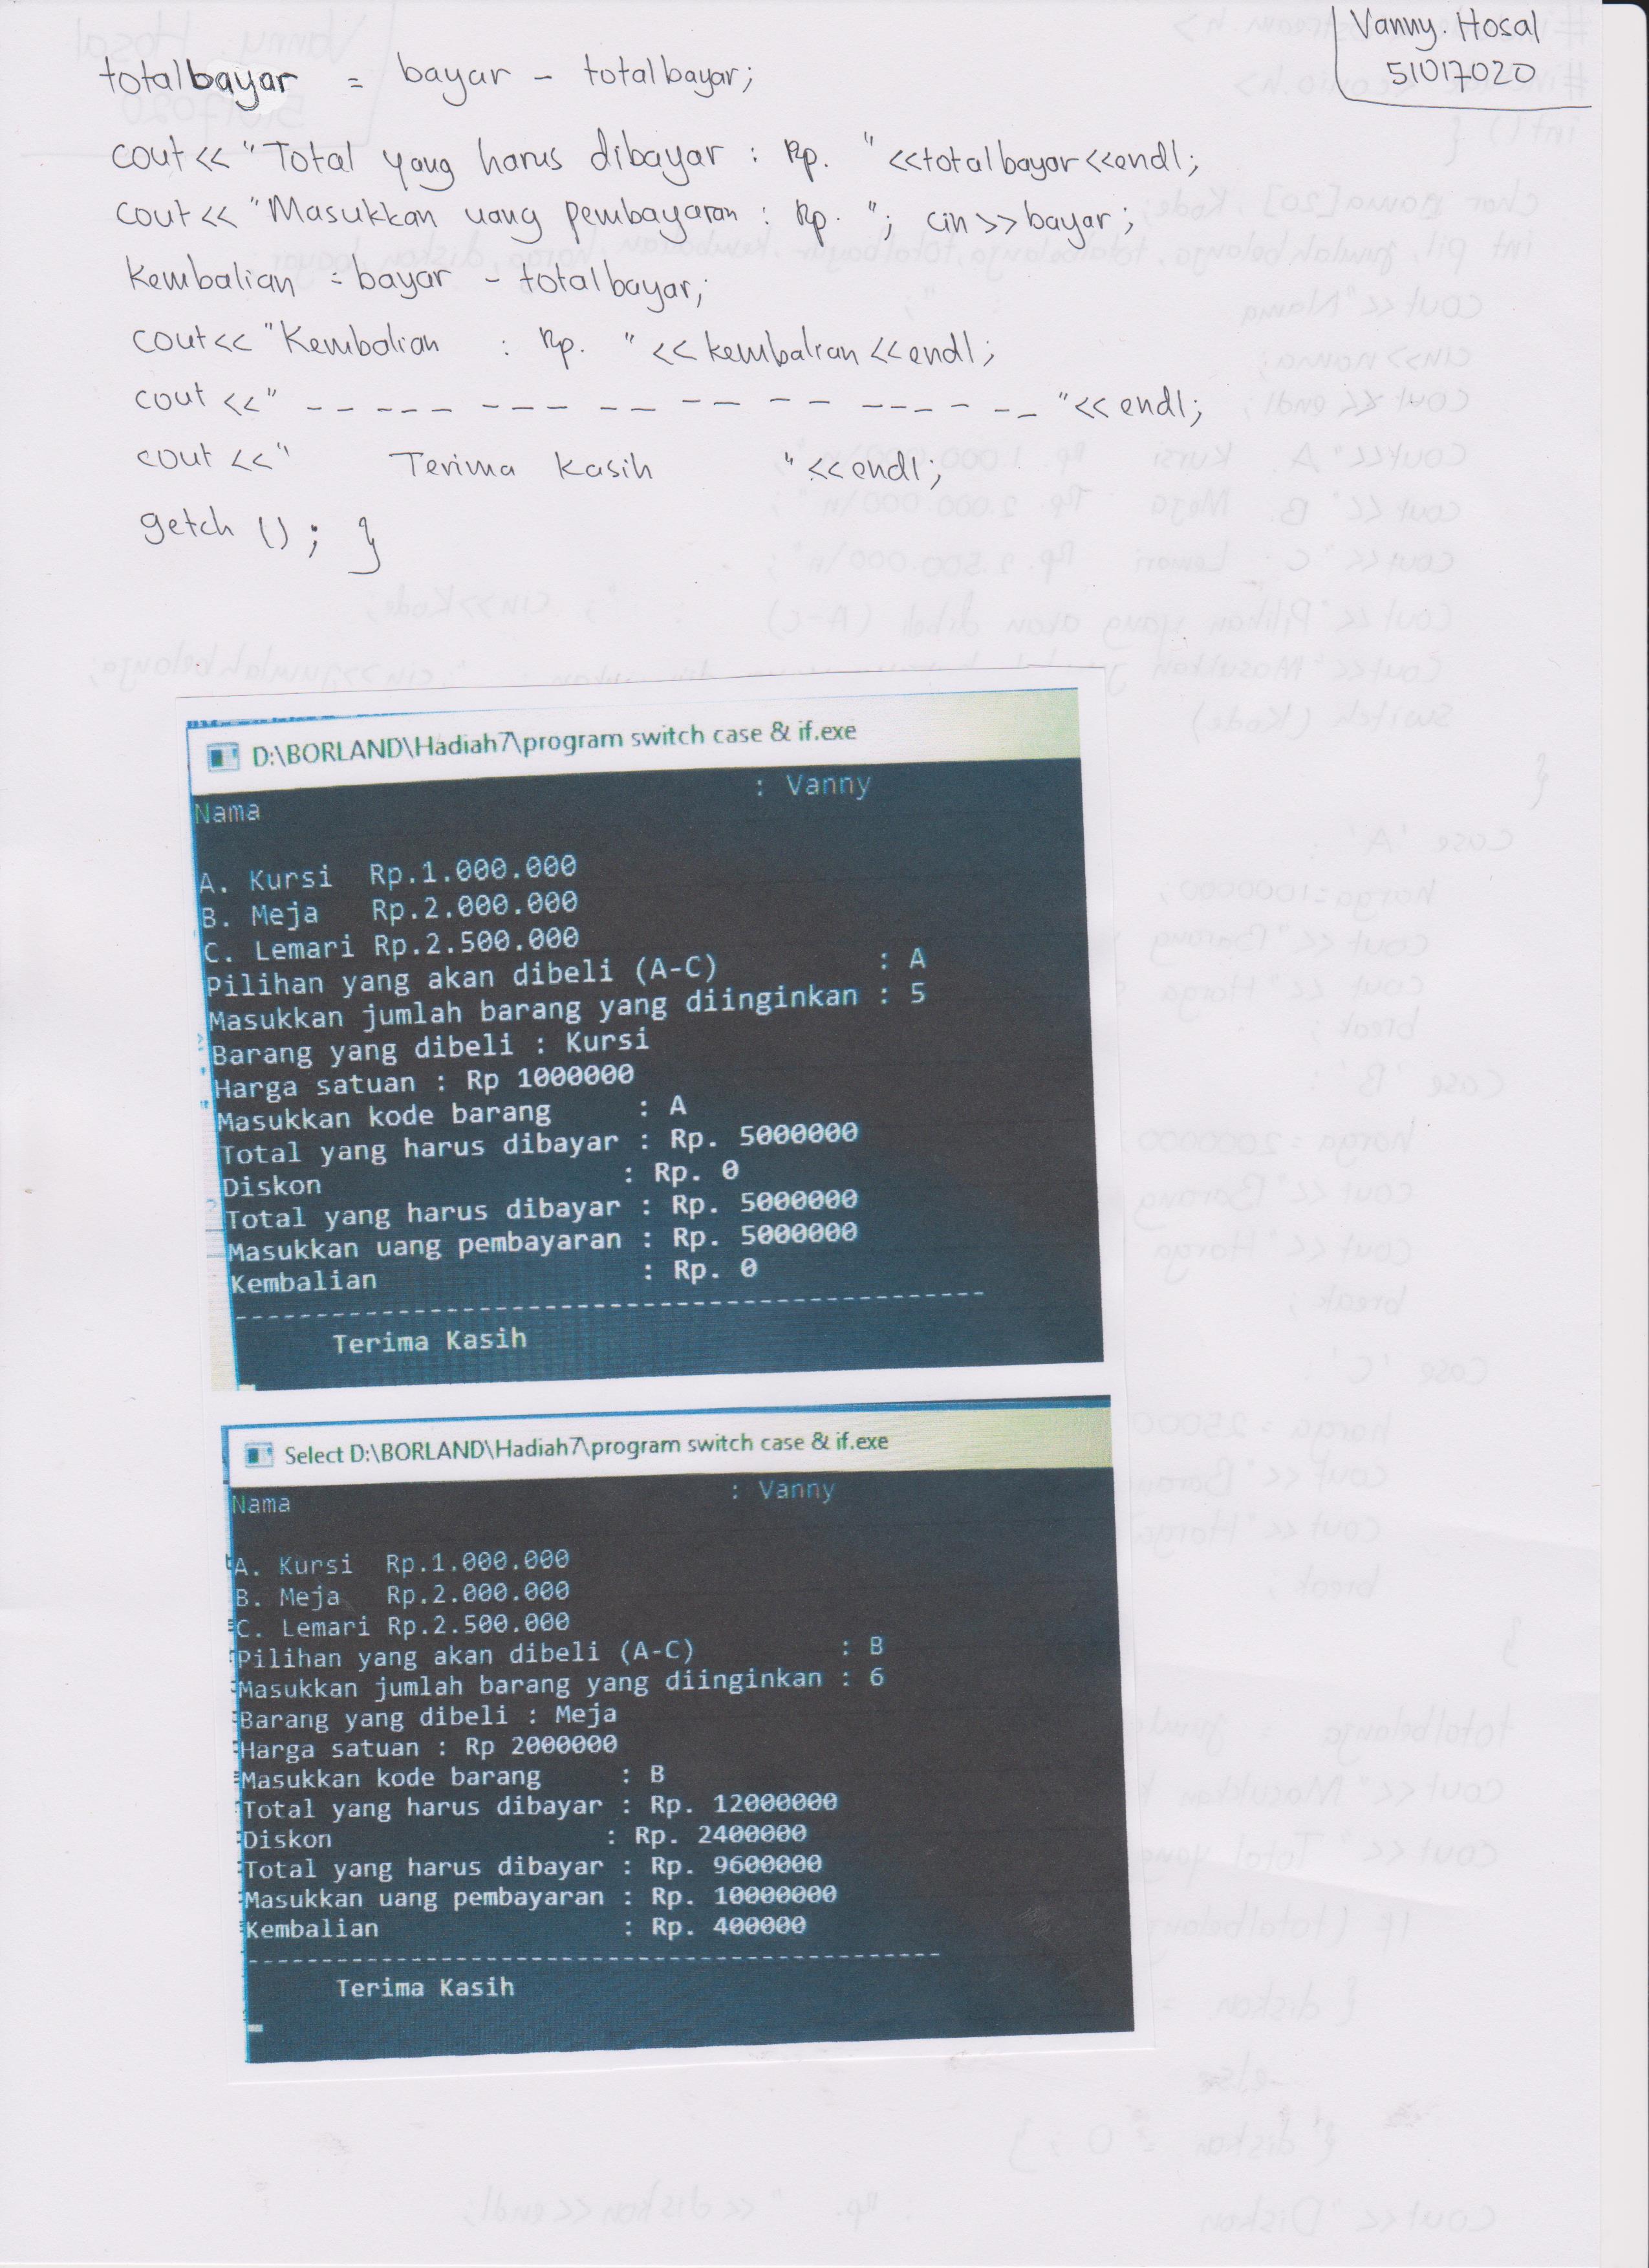 Vanny. Hosal
51017020
totalbayar = bayar - totalbayar;
cout << "Total yang harus dibayar : Rp. " <<totalbayar<<endl;
cout << "Masukkan uang pembayaran : Rp. "; cin >> bayar;
Kembalian = bayar - totalbayar;
cout << "Kembalian : Rp. " << kembalian << endl;
cout << " - - - - - - - - - - - - - - - - - - - - " << endl;
cout << " Terima Kasih " << endl;
getch (); }
D:\BORLAND\Hadiah7\program switch case & if.exe
Nama : Vanny
A. Kursi Rp.1.000.000
B. Meja Rp.2.000.000
C. Lemari Rp.2.500.000
Pilihan yang akan dibeli (A-C) : A
Masukkan jumlah barang yang diinginkan : 5
Barang yang dibeli : Kursi
Harga satuan : Rp 1000000
Masukkan kode barang : A
Total yang harus dibayar : Rp. 5000000
Diskon : Rp. 0
Total yang harus dibayar : Rp. 5000000
Masukkan uang pembayaran : Rp. 5000000
Kembalian : Rp. 0
--------------------------------------------
Terima Kasih
Select D:\BORLAND\Hadiah7\program switch case & if.exe
Nama : Vanny
A. Kursi Rp.1.000.000
B. Meja Rp.2.000.000
C. Lemari Rp.2.500.000
Pilihan yang akan dibeli (A-C) : B
Masukkan jumlah barang yang diinginkan : 6
Barang yang dibeli : Meja
Harga satuan : Rp 2000000
Masukkan kode barang : B
Total yang harus dibayar : Rp. 12000000
Diskon : Rp. 2400000
Total yang harus dibayar : Rp. 9600000
Masukkan uang pembayaran : Rp. 10000000
Kembalian : Rp. 400000
--------------------------------------------
Terima Kasih